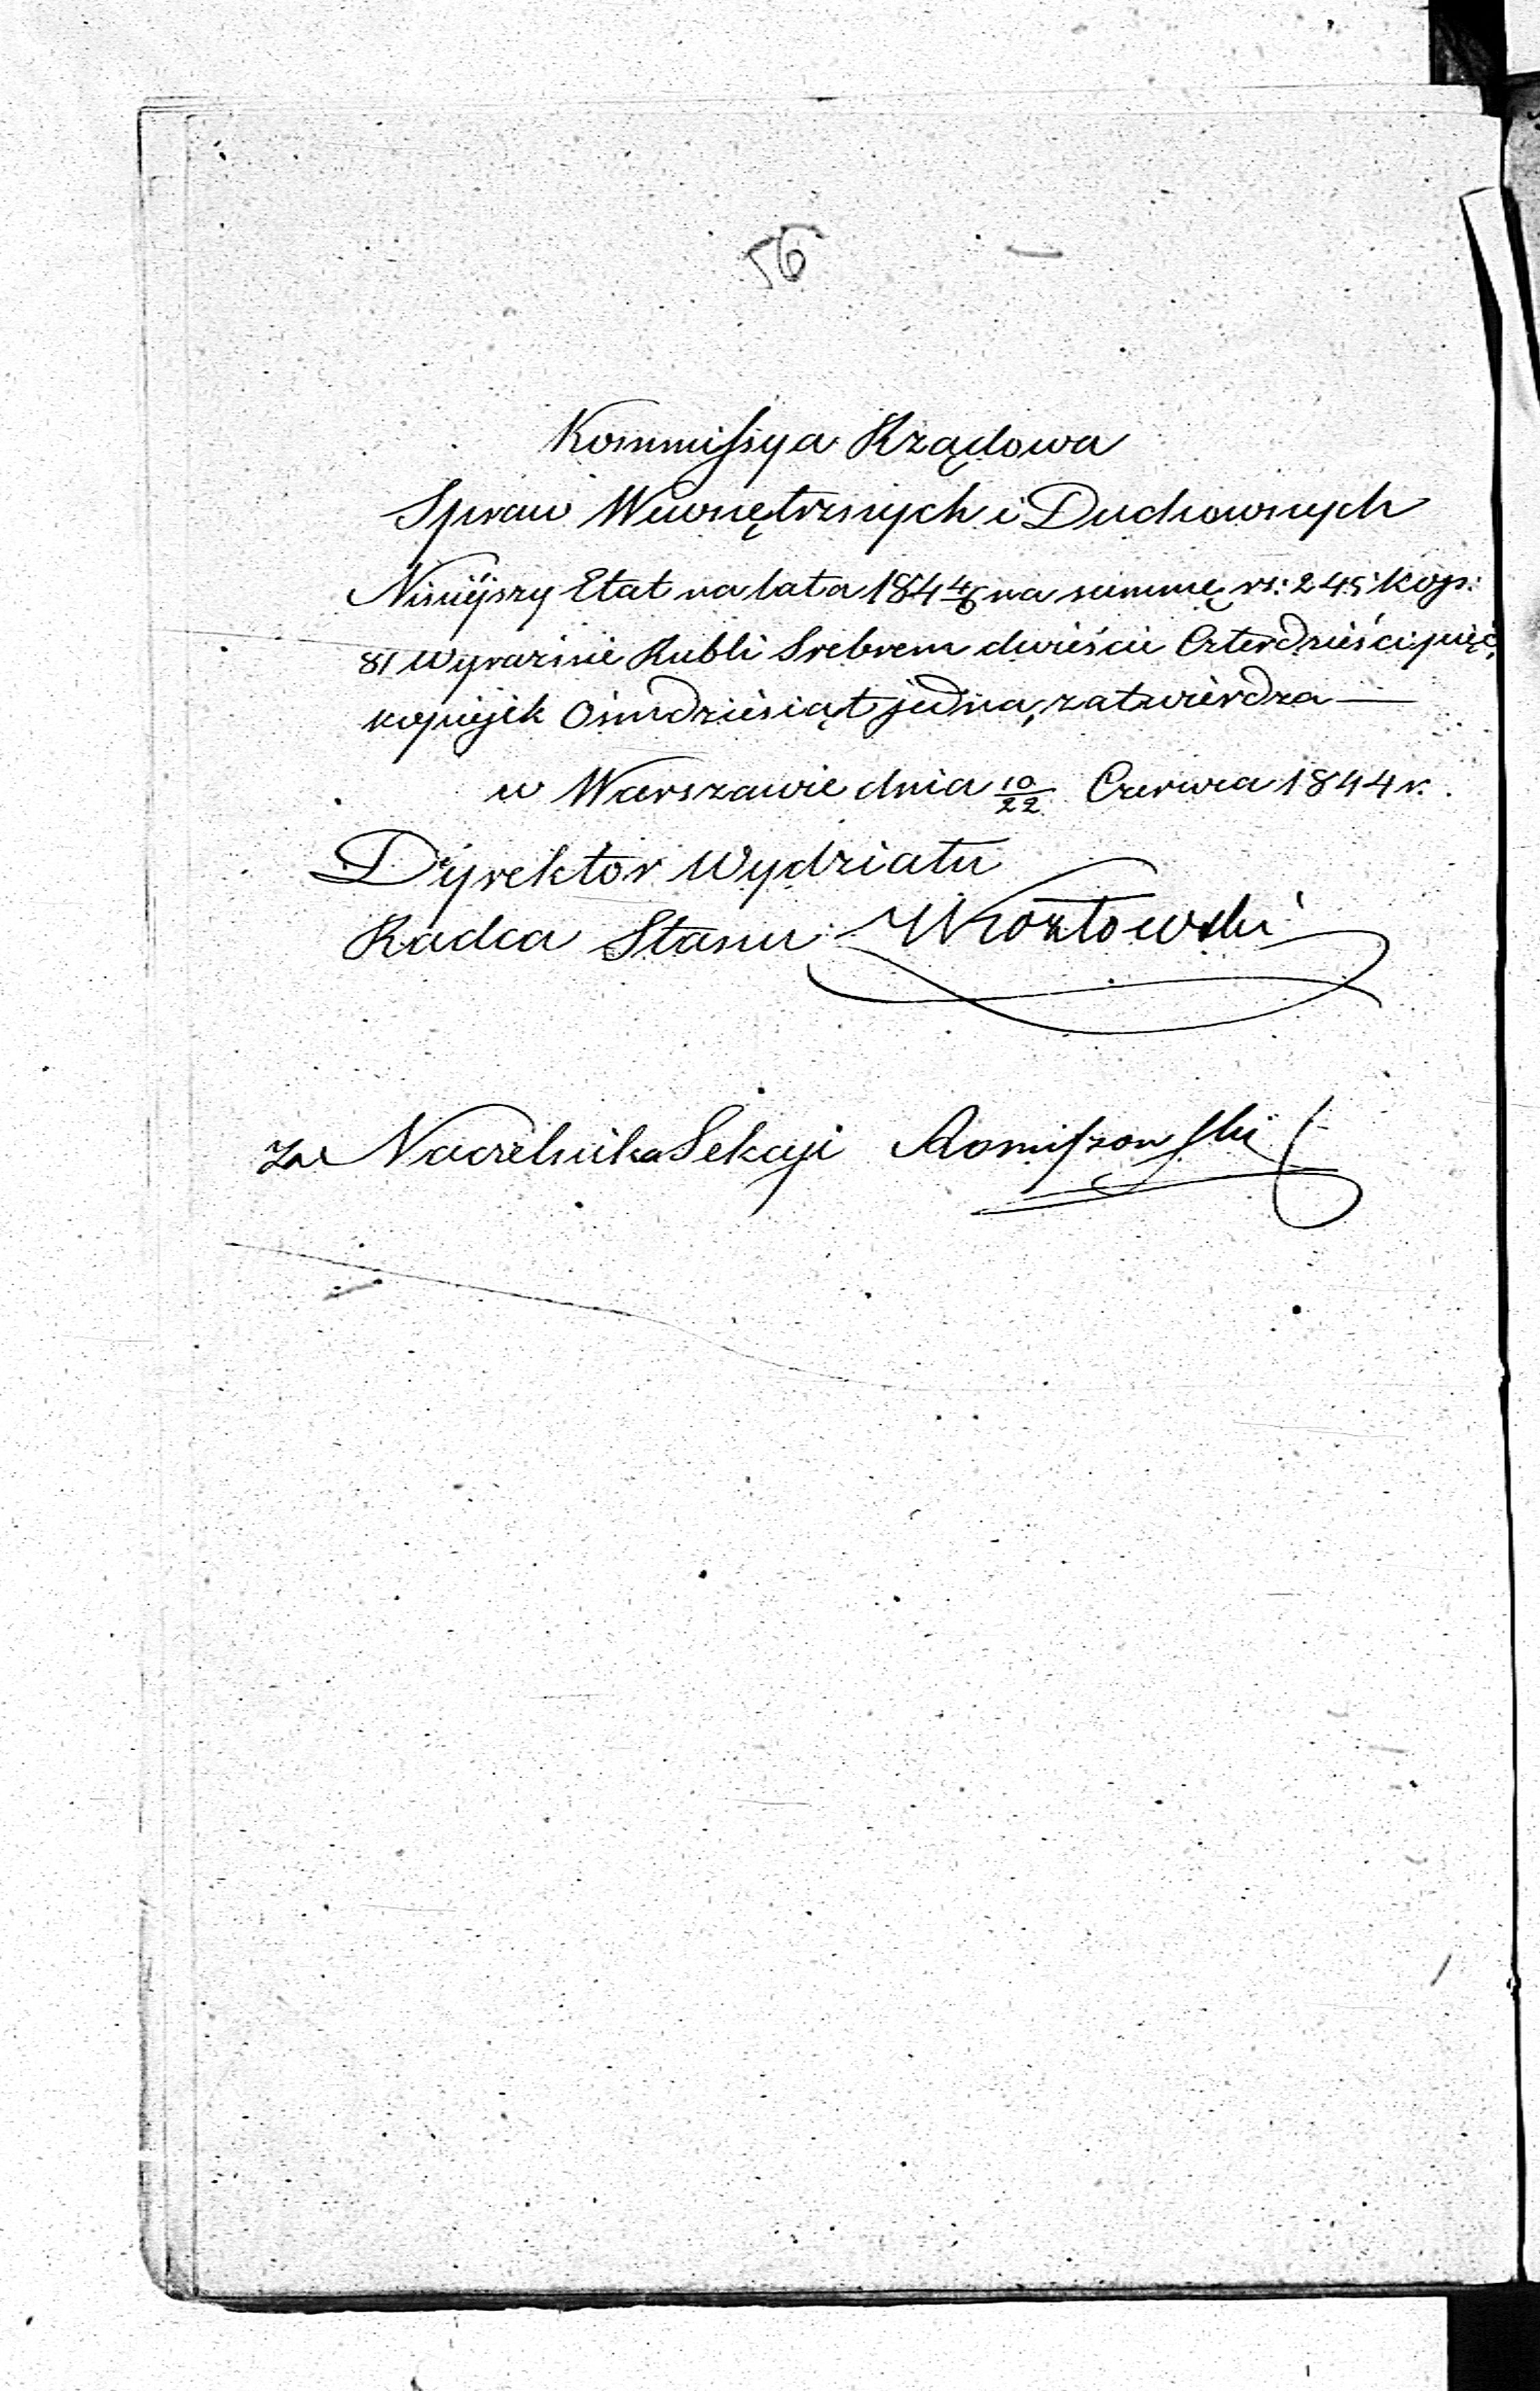 56
Kommissya Rządowa
Spraw Wewnętrznych i Duchownych
Ninieyszy Etat na lata 184 4/6 na summę rs: 245 kop:
81 Wyraźnie Rubli Srebrem dwieście Czterdzieści pięć,
kopiejek Ośmdziesiąt jedna, zatwierdza —
w Warszawie dnia 10/22 Czerwca 1844 r.
Dyrektor Wydziału
Radca Stanu Kozłowski
za Naczelnika Sekcyi